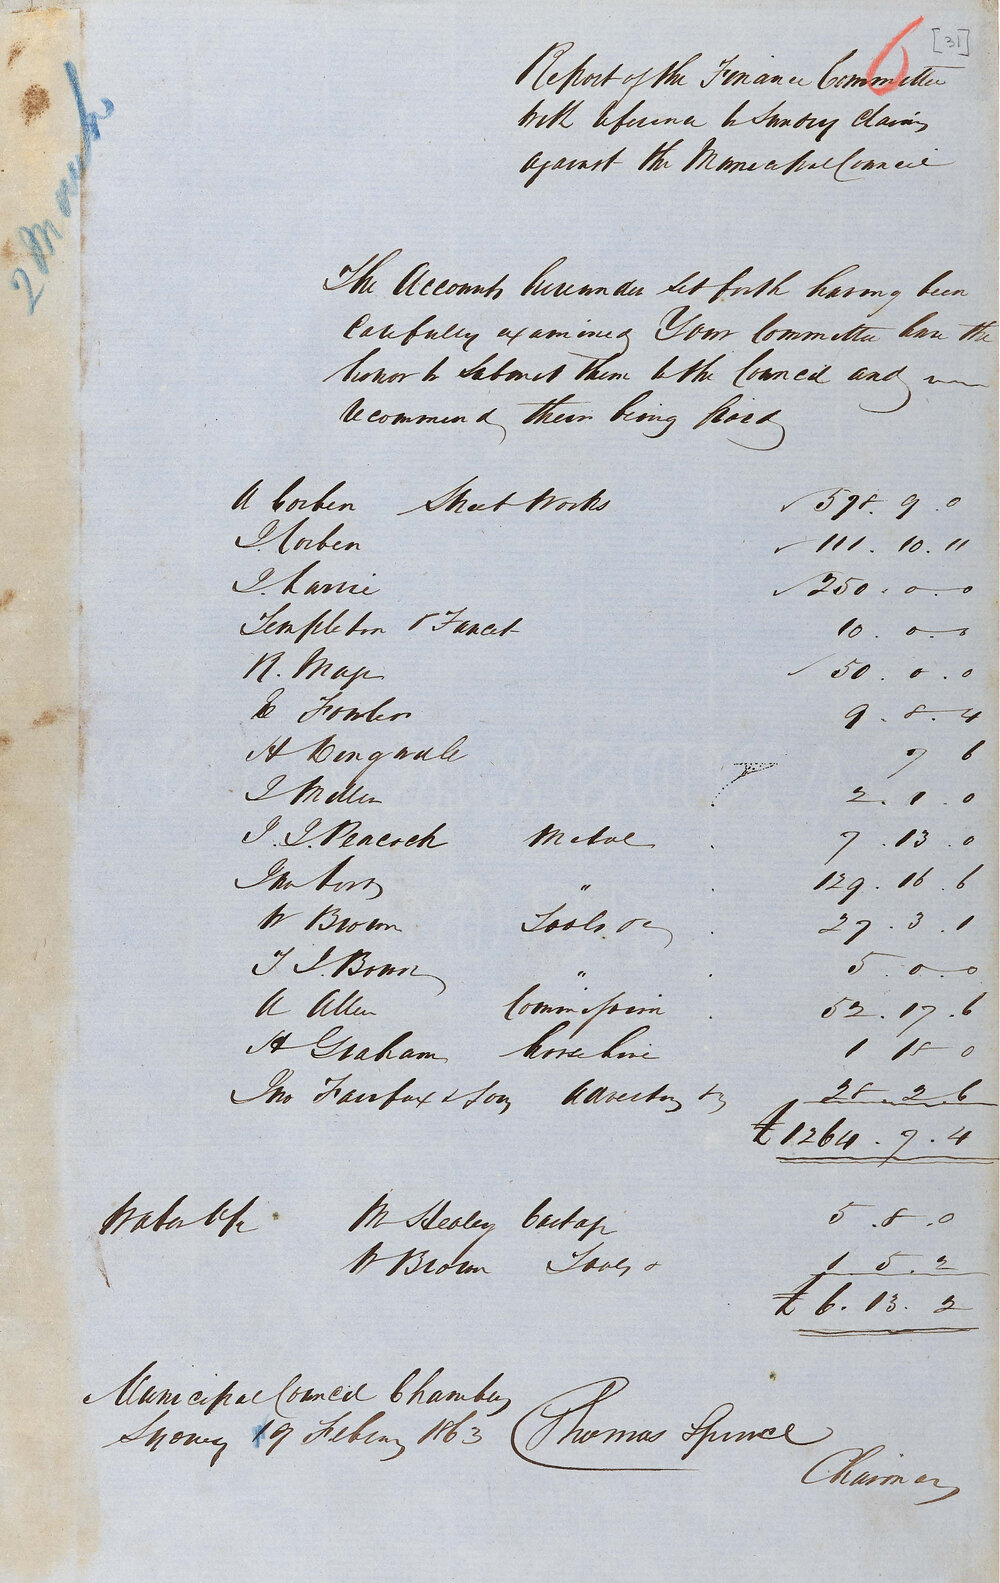 6 [31]
Report of the Finance Committee
with reference to Sundry Claims
against the Municipal Council
2 Month
The Accounts hereunder set forth having been
Carefully examined Your Committee have the
honor to Submit them to the Council and
recommend their being paid
A Corben Street Works √ 598. 9. 0
J. Corben √ 111. 10. 11
J. √ 250. 0. 0
Templeton & 10. 0. 0
R. Mass √ 50. 0. 0
E Fowler 9. 8. 4
H Kingwell 7 6
J Miller 2. 1. 0
J. J. Peacock Metal 7. 13. 0
Jno " 129. 16. 6
W Brown Tools &c 27. 3. 1
T J. Bown " 5. 0. 0
A Allen Commission 52. 17. 6
H Graham horse hire 1 18 0
Jno Fairfax & Son Advertisg &c 28. 2. 6
£1264. 7. 4
Water W Healey Cartage 5. 8. 0
W Brown Tools & 1. 5. 2
£ 6. 13. 2
Municipal Council Chambers
Sydney 19 Febry 1863 Thomas Spence
Chairman